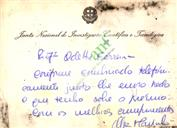 Junta Nacional de Investigação Científica e Tecnológica
Profª Odette Ferreira
conforme combinado telefoni-
camente junto lhe envio todo
o que tenho sobre o assunto
Com os melhores cumprimentos